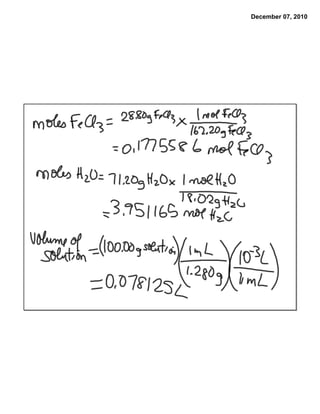 December 07, 2010
moles FeCl3 = 28.80g FeCl3 x 1 mol FeCl3
162.20g FeCl3
=0.1775586 mol FeCl3
moles H2O = 71.20g H2O x 1 mol H2O
18.02g H2O
=3.951165 mol H2O
Volume of
solution = (100.00g solution)(1 mL / 1.280g)(10^-3 L / 1 mL)
=0.078125L